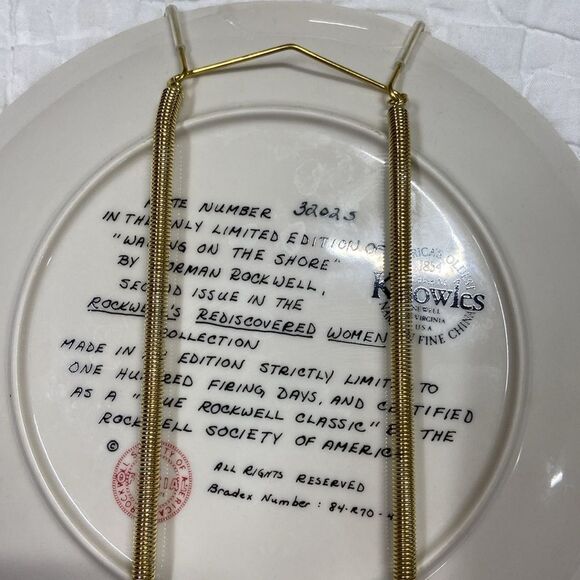 NUMBER 3202S
IN THE ONLY LIMITED EDITION OF
"WAITING ON THE SHORE"
BY NORMAN ROCKWELL,
SECOND ISSUE IN THE
ROCKWELL'S REDISCOVERED WOMEN
COLLECTION
MADE IN AN EDITION STRICTLY LIMITED TO
ONE HUNDRED FIRING DAYS, AND CERTIFIED
AS A "TRUE ROCKWELL CLASSIC" BY THE
ROCKWELL SOCIETY OF AMERICA
©
ALL RIGHTS RESERVED
Bradex Number: 84-R70-
AMERICA'S OLDEST
1854
Knowles
NEWELL
VIRGINIA
U.S.A
FINE CHINA
ROCKWELL SOCIETY OF AMERICA